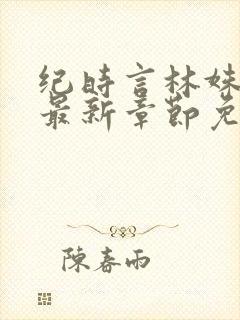 纪时言林妹
最新章节免
陳春雨